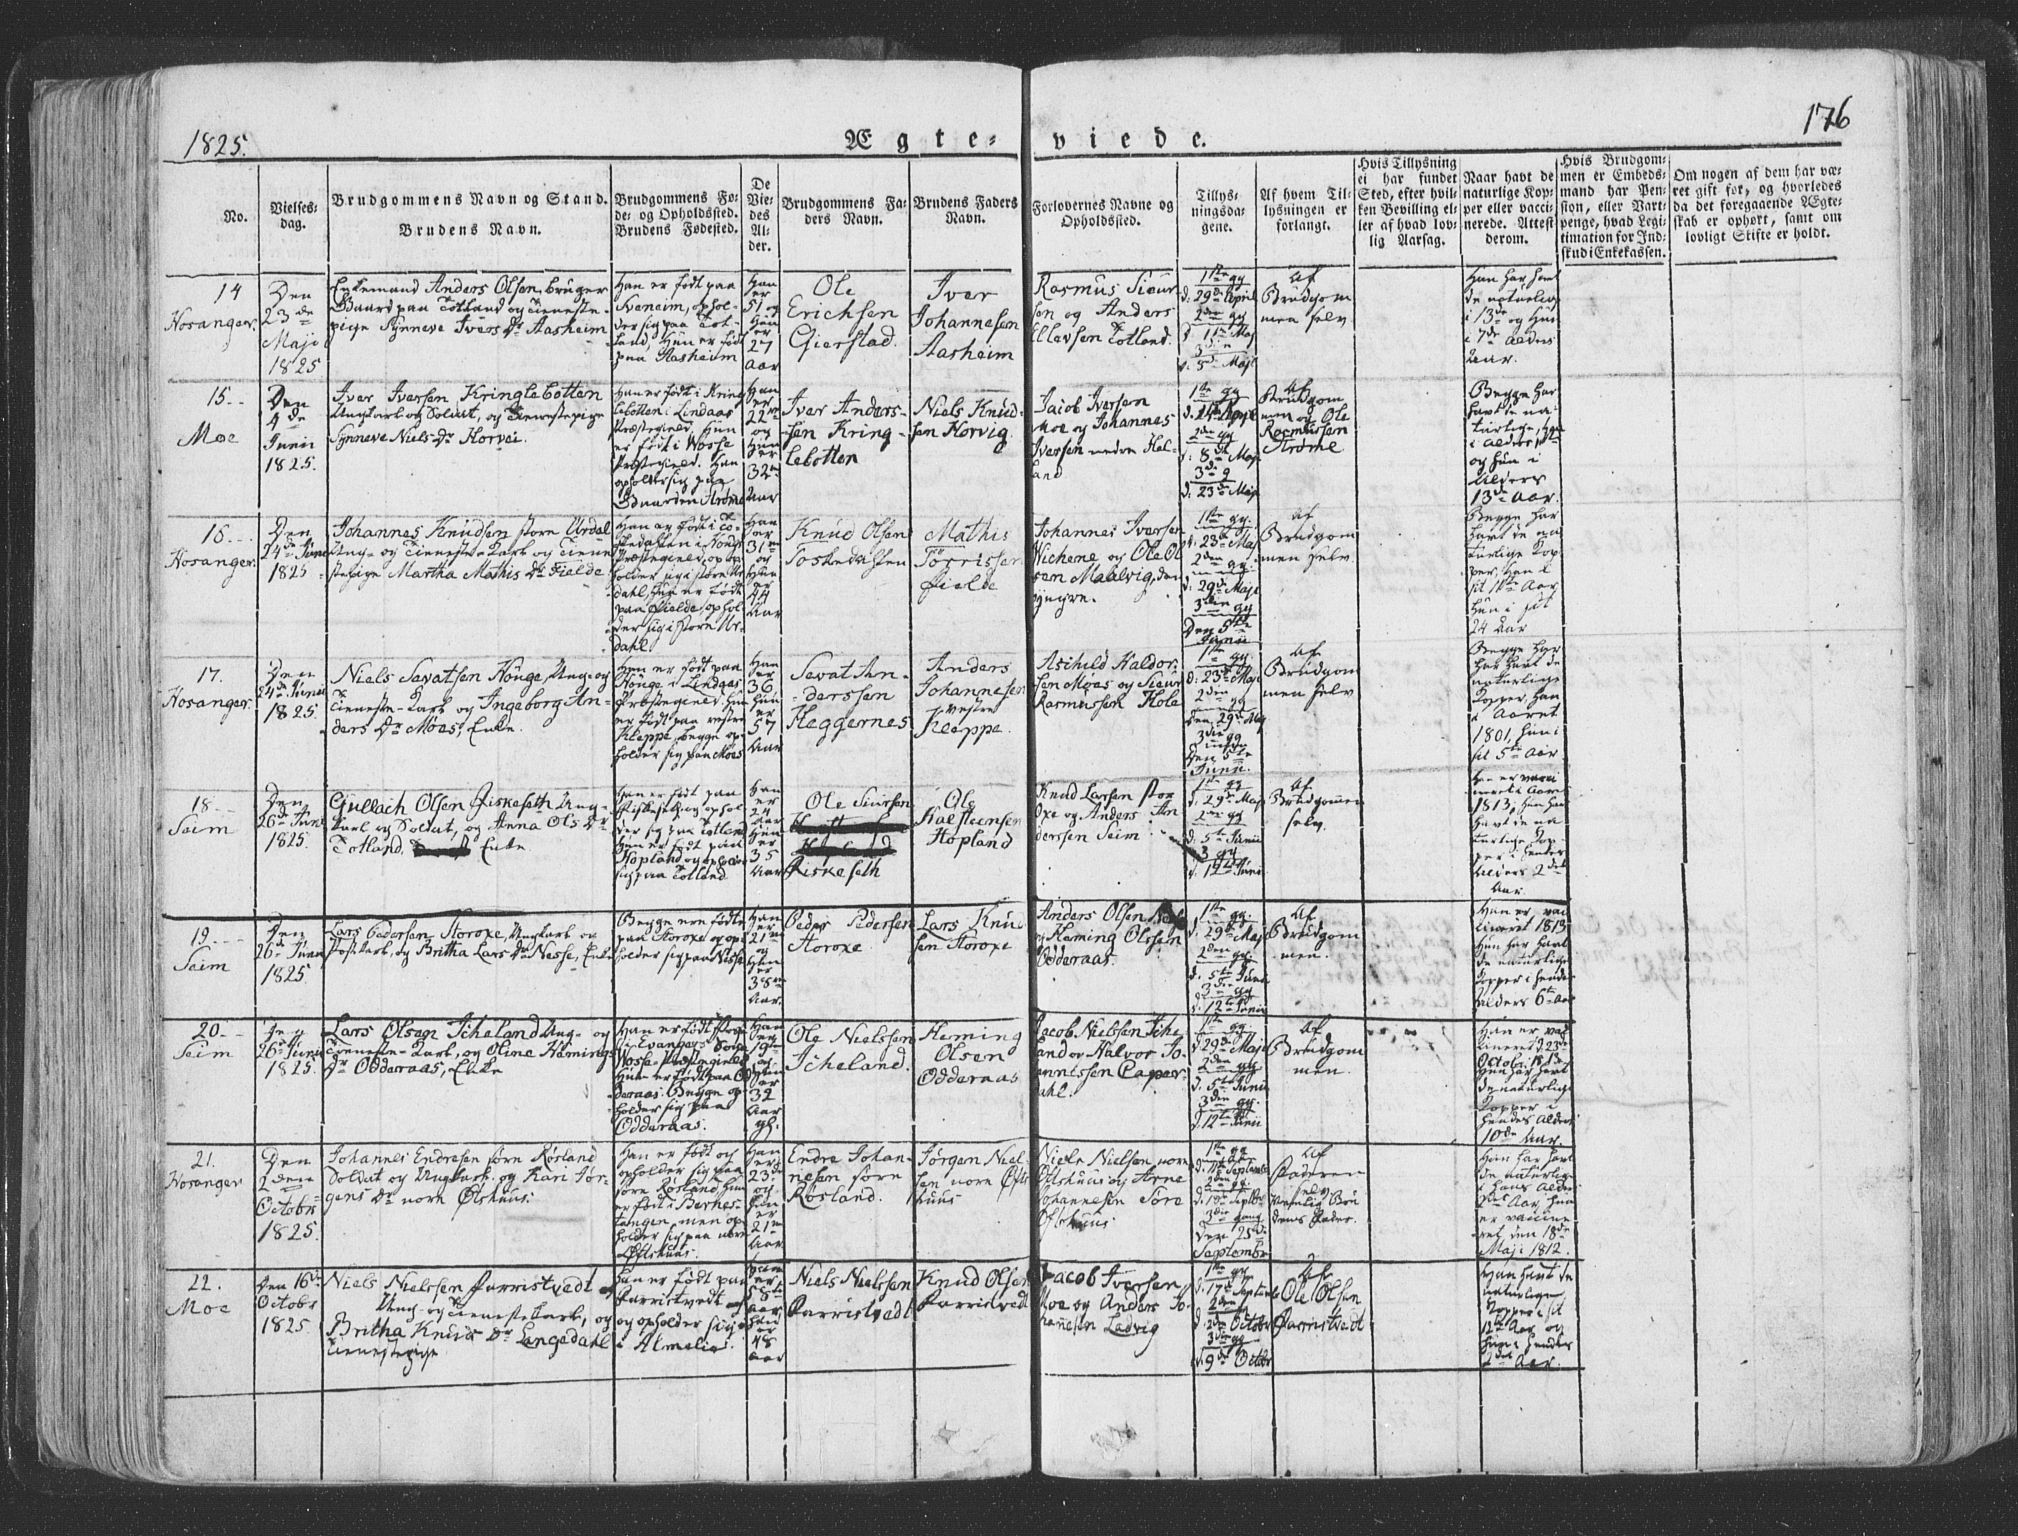 1825.
Ægte-
viede.
176
No.
Vielses-
dag.
Brudgommens Navn og Stand.
Brudens Navn.
Brudgommens Fø-
de- og Opholdssted.
Brudens Fødested.
De
Vie-
des
Al-
der.
Brudgommens Fa-
ders Navn.
Brudens Faders
Navn.
Forlovernes Navne og
Opholdssted.
Tillys-
ningsda-
gene.
Af hvem Til-
lysningen er
forlangt.
Hvis Tillysning
ei har fundet
Sted, efter hvil-
ken Bevilling el-
ler af hvad lov-
lig Aarsag.
Naar havt de
naturlige Kop-
per eller vacci-
nerede. Attest
derom.
Hvis Brudgom-
men er Embeds-
mand har Pen-
sion, eller Vart-
penge, hvad Legi-
timation for Ind-
skud i Enkekassen.
Om nogen af dem har væ-
ret gift før, og hvorledes
da det foregaaende Ægte-
skab er ophørt, samt om
lovligt Skifte er holdt.
14
Hosanger.
Den
23de
Maji
1825
Enkemand Anders Olsen, bruger
Gaard paa Totland og Tieneste-
pige Synneve Ivers Dr Aasheim
Han er født paa
ophol-
der sig paa Tot-
land. Hun er født
paa Aasheim
Han
er
51 og
Hun
er
27
Aar
Ole
Erichsen
Gierstad.
Iver
Johannesen
Aasheim
Rasmus Siur-
sen og Anders
Ellevsen Totland.
1ste gg
d: 29de April
2den gg
d 1ste Maj
3die
d. 5de Maj
Af
Brudgom
men selv
Han har havt
de naturlig
i 13de og Hun
i 7de Alders
Aar.
15. -
Moe
Den
4de
Junii
1825.
Iver Iversen Kringlebotten
Ungkarl og Soldat, og Tienestepige
Synneve Niels Dr Horvei.
Han er født i Kring
lebotten i Lindaas
Præstegield. Hun
er født i Vosse
Præstegield. Han
opholder sig paa
Gaarden Strøme
Han
er
22
og
Hun
er
32
Aar
Iver Anders-
sen Kring-
lebotten
Niels Knud-
sen Horvig.
Jacob Iversen
Moe og Johannes
Iversen nedre Hal-
land
1ste gg
2den gg
d: 8de Maj
3die g
d: 23de Maj
Af
Brudgom
men og Ole
Rasmussen
Strøme
Begge har
havt de na-
turlige, Han
i Alders
og hun i
Alders
13de Aar.
16. -
Hosanger.
Den
24de Junii
1825
Johannes Knudsen store Urdal
Ung- og Tieneste-Karl og Tiene
stepige Martha Mathis Dr Fielde
Han er født i To-
skedalen i Hougs
Præstegield, op op
holder sig i store Ur
dahl, Hun er født
paa Fielde, ophol
der sig i store Ur-
dahl
Han
er
31
og
Hun
er
44
Aar
Knud Olsen
Toskedalen
Mathis
Torrissen
Fielde
Johannes Iversen
Wichene og Ole Ol
sen Maalvig, den
yngre.
1ste gg.
d. 23de Maj
2den
gg.
d: 29de Maje
3die
gg
Den 5te
Junii
Af
Brudgom
men selv
Begge har
havt de na
turlige Kop
per, Han i
sit 11te Aar
Hun i sit
24 Aar
17.
Hosanger.
Den
24de Junii
1825.
Niels Savatsen Houge Ung- og
Tieneste-Karl og Ingeborg An-
ders Dr Møes, Enke.
Han er født paa
Houge i Lindaas
Præstegield. Hun
er født paa vestre
Kleppe, begge op-
holder sig paa Møes
Han
er
36
Hun
er
57
Aar
Savat An-
derssen
Heggernes
Anders
Johannesen
Vestre
Kleppe.
Aschild Haldor-
sen Møes og Siur
Rasmussen Hole
1ste gg.
d: 23de Maje
2den
gg
Den 29de Maj
3die gg
Den 5te
Junii.
Af
Brudgom
men selv
Begge har
havt de
naturlige
Kopper, Han
i Aaret
1801, hun i
sit 5te Aar
18 -
Seim
Den
26de Junii
1825.
Gullach Olsen Fiskeseth Ung-
karl og Soldat, og Anna Ols Dr
Totland, Enke
Han er født paa
Fiskeseth og ophol
der sig paa Totland
Hun er født paa
Hopland og opholder
sig paa Totland
Han
er
24
Aar
Hun
er
35
Aar
Ole Siursen
Fiskeseth
Ole
Halsteensen
Hopland
Knud Larsen stor
Oxe og Anders An
derssen Seim
1ste gg
d. 29de Maj
2den gg
d: 5te Junii
3 gg
d. 12te Junii
Af
Brudgommen
selv.
Han er vacci
neret i Aaret
1813, Hun har
havt de na
turlige Kop
per i hendes
Alders 2det
Aar
19. -
Seim
Den
26de Junii
1825.
Lars Pedersen Storoxe, Ungkarl og
Postkarl, og Britha Lars Dr Nesse, Enke
Begge ere fødte
paa Storoxe og op
holder sig paa Nesse
Han
er
21
og
Hun
er
38
Aar.
Peder Pedersen
Storoxe.
Lars Knud
sen Storoxe
Anders Olsen
og Heming Olssen
Odderaas.
1ste gg.
d. 29de Maj
2den gg.
d. 5te Junii
3die gg
d. 12te Junii
Af
Brudgom
men.
Han er vac
cineret 1813
Hun har havt
de naturlige
Kopper i hendes
Alders 6te Aar
20. -
Seim
Den
26de Junii
1825.
Lars Olsen Icheland Ung- og
Tieneste-Karl, og Oline Hemings
Dr Odderaas, Enke
Han er født
i Evangers Sogn
Vosse Præstegield
Hun er født paa Od
deraas. Begge op
holder sig paa
Odderaas.
Han
er
29
og
Hun
er
32
Aar
gl.
Ole Nielssen
Icheland.
Heming
Olsen
Odderaas
Jacob Nielsen Iche
land og Halvor Jo-
annissen Eager-
dahl.
1ste gg
d. 29de Maj
2den gg
d. 5te Junii
3die gg.
d. 12te Junii
Af
Brudgom
men.
Han er vac
cineret d 23de
Octobr. 1813
Hun har havt
de naturlige
Kopper i
hendes Alders
10de Aar.
21.
Hosanger
Den
2den
Octobr
1825.
Johannes Endresen søre Røsland
Soldat og Ungkarl, og Kari Jør-
gens Dr norn Øfsthuus.
Han er født og
opholder sig paa
søre Røsland, Hun
er født i Berkes-
tangen, men op
holder sig paa norn
Øfsthuus.
Han
er
23
og
Hun
er
21
Aar
Endre Johan-
nesen søre
Røsland.
Jørgen Niel-
sen norn Øfst
huus
Niels Nielsen norn
Øfsthuus og Arne
Johannesen Søre
Øfsthuus.
1ste gg
d. 11te Septembr
2den gg.
d. 18de Septbr
3die gang
Den 25de
Septembr
Af
Faderen
selv
nemlig Bru
dens Fader.
Han har havt
de naturlige
i hans Alders
Aar, hun
er vaccine
ret, den 18de
Maji 1812.
22.
Moe
Den 16de
Octobr
1825.
Niels Nielssen Farristvedt
Ung- og Tienestekarl, og
Britha Knuds Dr Langedahl
Tienestepige
Han er født paa
Farristvedt
og opholder sig
i Almelid.
Han
er
58
Aar
Hun
er
48
Aar
Niels Nielssen
Farristvedt
Knud Olsen
Farristvedt
Jacob Iversen
Moe og Anders Jo-
hannesen Ladvig
1ste gg
d. 17de Septembr
2den
d. 2de Octobr
3die gg
d. 9de Octobr
Af
Ole Olsen
Farristvedt
Han havt de
naturlige
Kopper i sit
12te Aar og
hun i hendes
2det Aar.